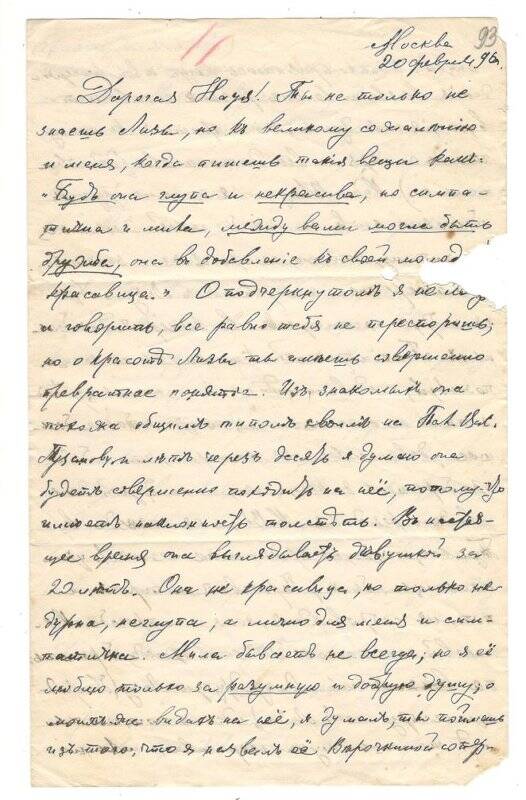 93
Москва
20 февраля 96.
Дорогая Надя! Ты не только не
знаешь Лизы, но къ великому сожалѣнію
и меня, когда пишешь такія вещи какъ:
"Будь она глупа и некрасива, но симпа-
тична и мила, между вами могла быть
дружба, она въ добавленіе къ своей молод
красавица." О подчеркнутомъ я не
и говорить, все равно тебя не переспоришь;
но о красотѣ Лизы ты имѣешь совершенно
превратное понятіе. Изъ знакомыхъ она
похожа общимъ типомъ своимъ на
и лѣтъ черезъ десять я думаю она
будетъ совершенно походить на неё, потому что
имѣетъ наклонность толстѣть. Въ настоя-
щее время она выглядываетъ дѣвушкой за
20 лѣтъ. Она не красавица, но только не
дурна, неглупа, а лично для меня и сим-
патична. Мила бываетъ не всегда; но я её
люблю только за разумную и добрую душу; о
моихъ же видахъ на неё, я думалъ, ты поймешь
изъ того, что я назвалъ её Вѣрочкиной